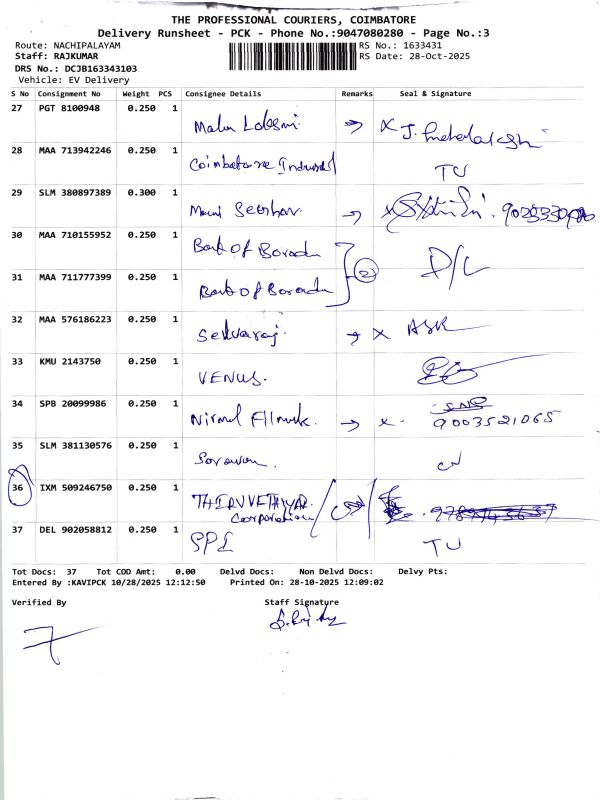 THE PROFESSIONAL COURIERS, COIMBATORE
Delivery Runsheet - PCK - Phone No.:9047080280 - Page No.:3
Route: NACHIPALAYAM RS No.: 1633431
Staff: RAJKUMAR RS Date: 28-Oct-2025
DRS No.: DCJB163343103
Vehicle: EV Delivery
S No Consignment No Weight PCS Consignee Details Remarks Seal & Signature
27 PGT 8100948 0.250 1
28 MAA 713942246 0.250 1
Coimbatore
TU
29 SLM 380897389 0.300 1
30 MAA 710155952 0.250 1
Bank of Baroda
D/C
31 MAA 711777399 0.250 1
Bank of Baroda
2
32 MAA 576186223 0.250 1
Selvaraj.
33 KMU 2143750 0.250 1
VENUS.
34 SPB 20099986 0.250 1
Nirmal x. 9003521065
35 SLM 381130576 0.250 1
36 IXM 509246750 0.250 1
Corporation
37 DEL 902058812 0.250 1
SPI TU
Tot Docs: 37 Tot COD Amt: 0.00 Delvd Docs: Non Delvd Docs: Delvy Pts:
Entered By :KAVIPCK 10/28/2025 12:12:50 Printed On: 28-10-2025 12:09:02
Verified By Staff Signature